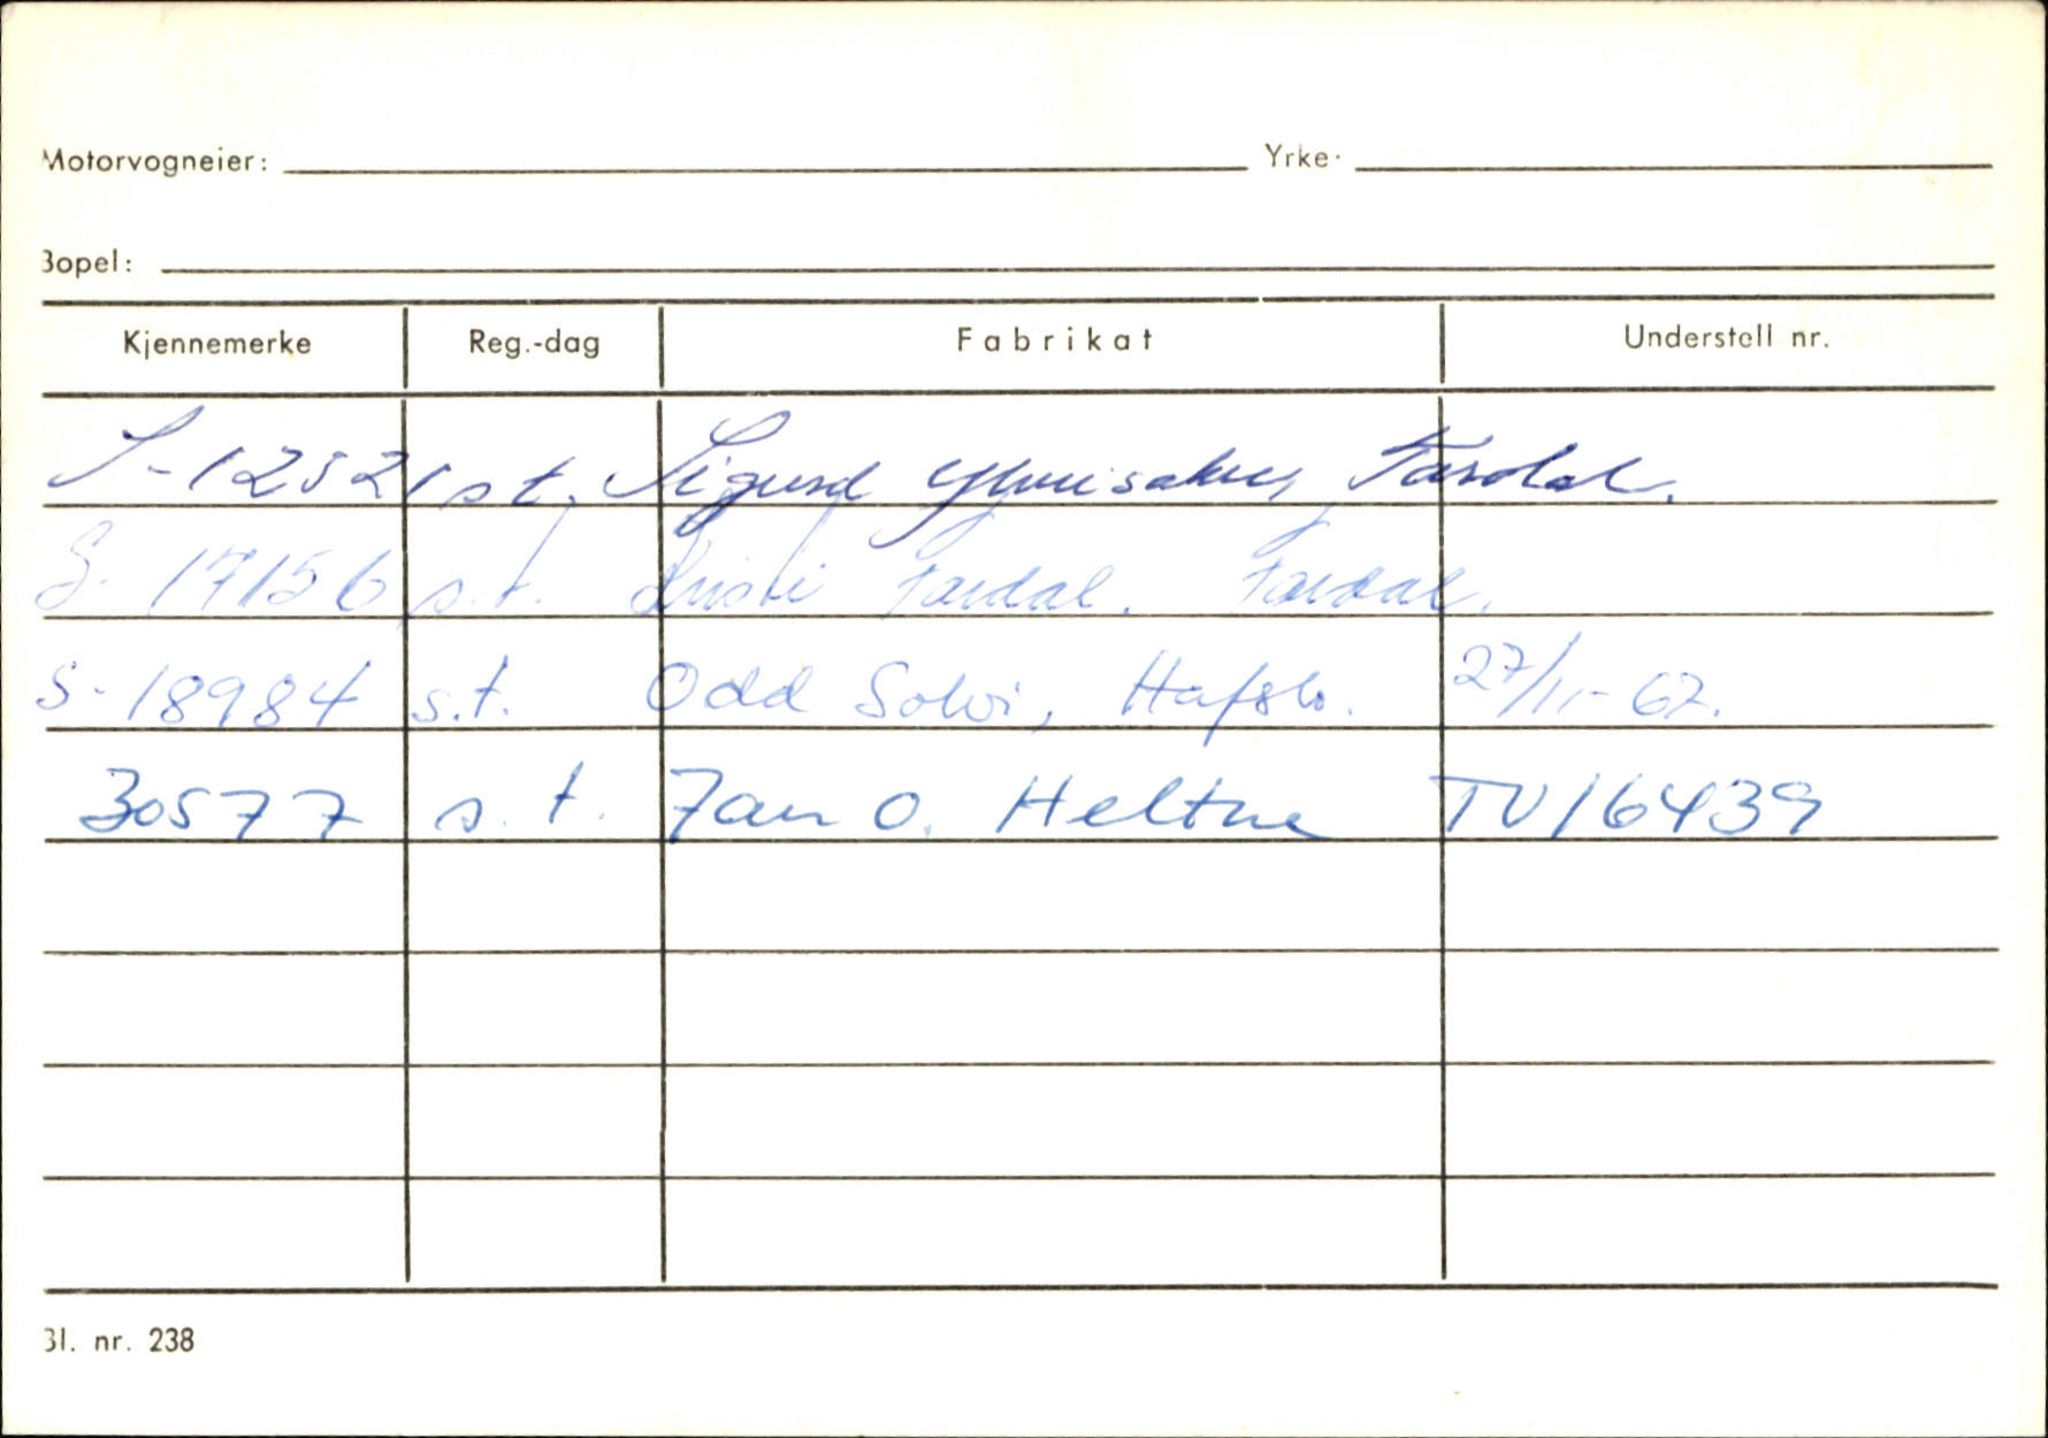 Motorvogneier: Yrke.
Bopel:
Kjennemerke Reg.-dag Fabrikat Understell nr.
S-12521 st. Sigurd Fardal.
S. 17156 s.t. Kristi Fardal. Fardal.
S-18984 s.t. Odd Solvi, Hafslo. 27/11-67.
30577 s.t. Jan O. Heltne TV16439
Bl. nr. 238